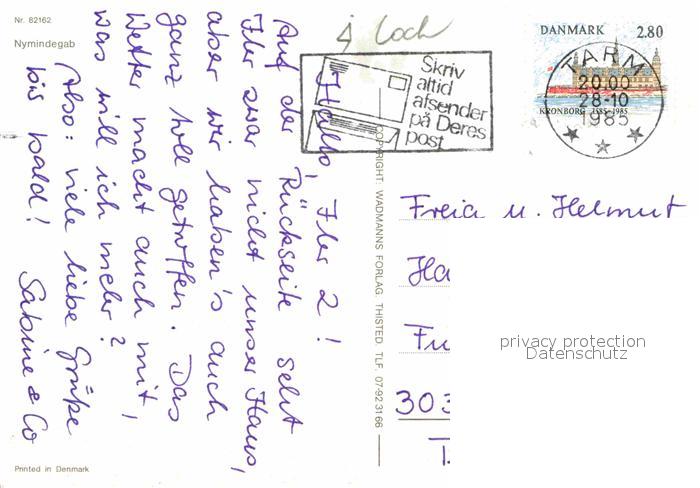 Nr. 82162
Nymindegab
Hallo, Ihr 2!
Auf der Rückseite seht
Ihr zwar nicht unser Haus,
aber wir haben's auch
ganz toll getroffen. Das
Wetter macht auch mit,
was will ich mehr?
Also: viele liebe Grüße
bis bald! Sabine & Co
Printed in Denmark
COPYRIGHT: WADMANNS FORLAG. THISTED. TLF. 07-92 31 66
Skriv
altid
afsender
på Deres
post
DANMARK 2.80
KRONBORG 1585-1985
TARM
20.00
28-10
1985
Freia u. Helmut
Ha
Fu
303
T.
privacy protection
Datenschutz